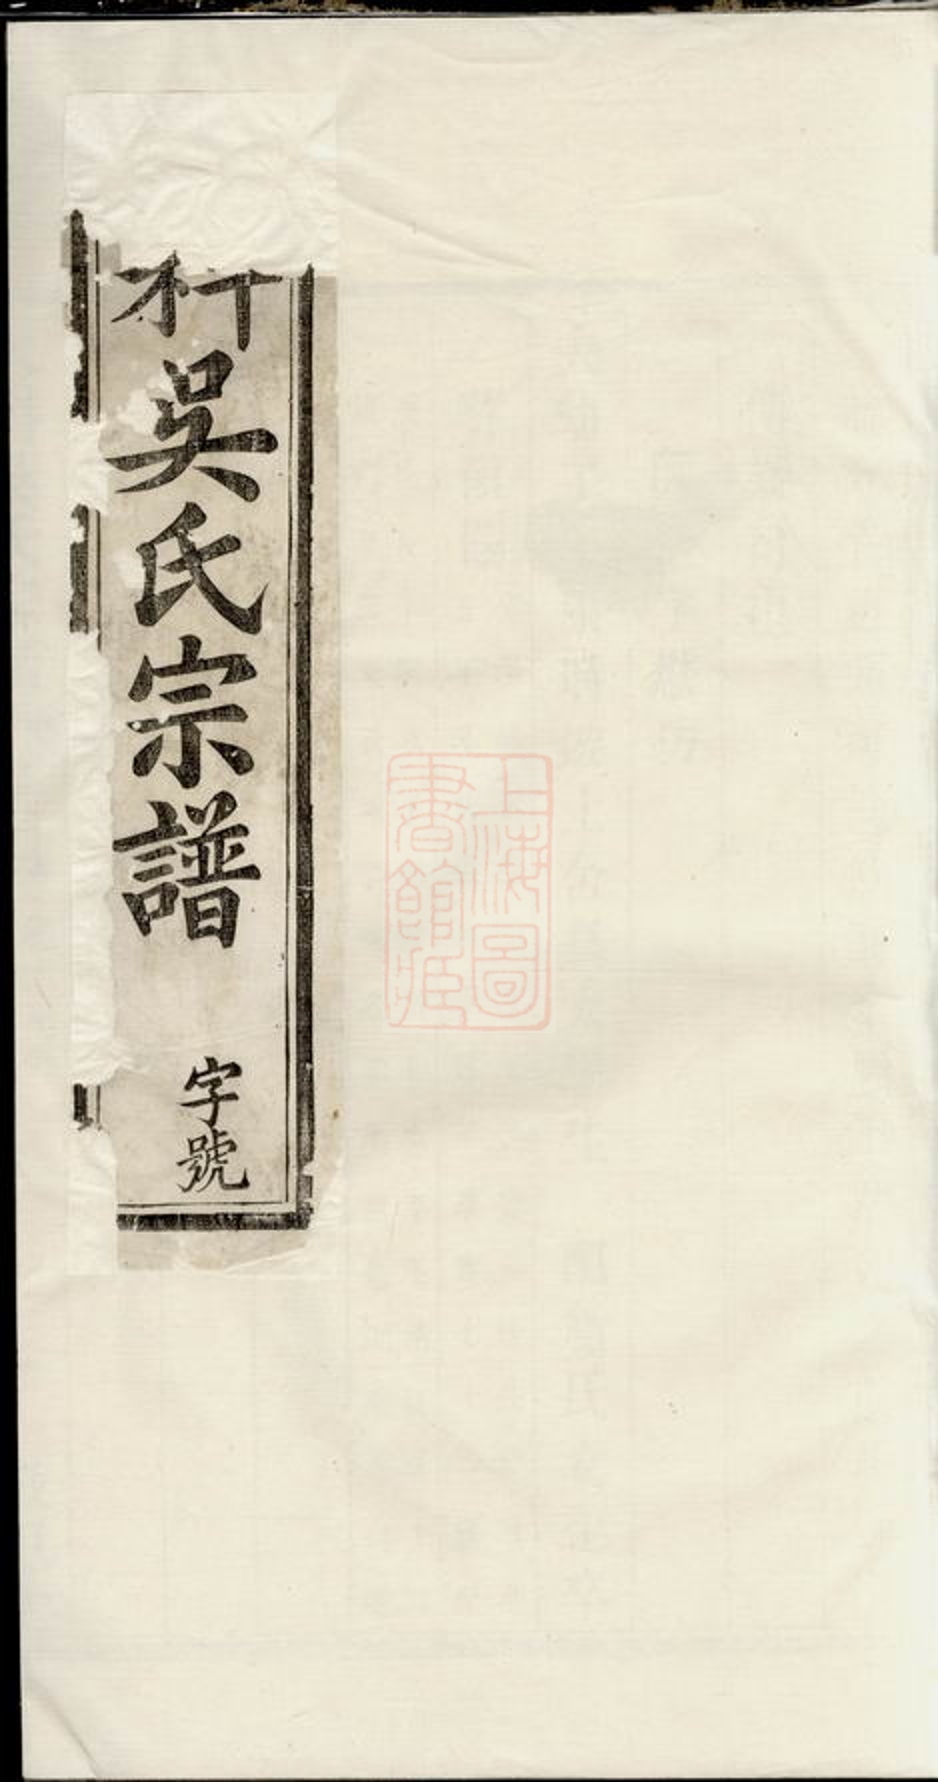 吳氏宗譜
字號
上海圖
書館藏